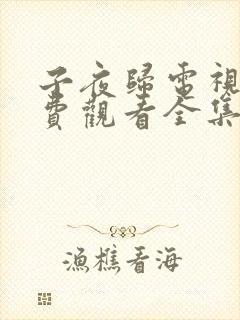 子夜歸電視
費觀看全集
漁樵看海